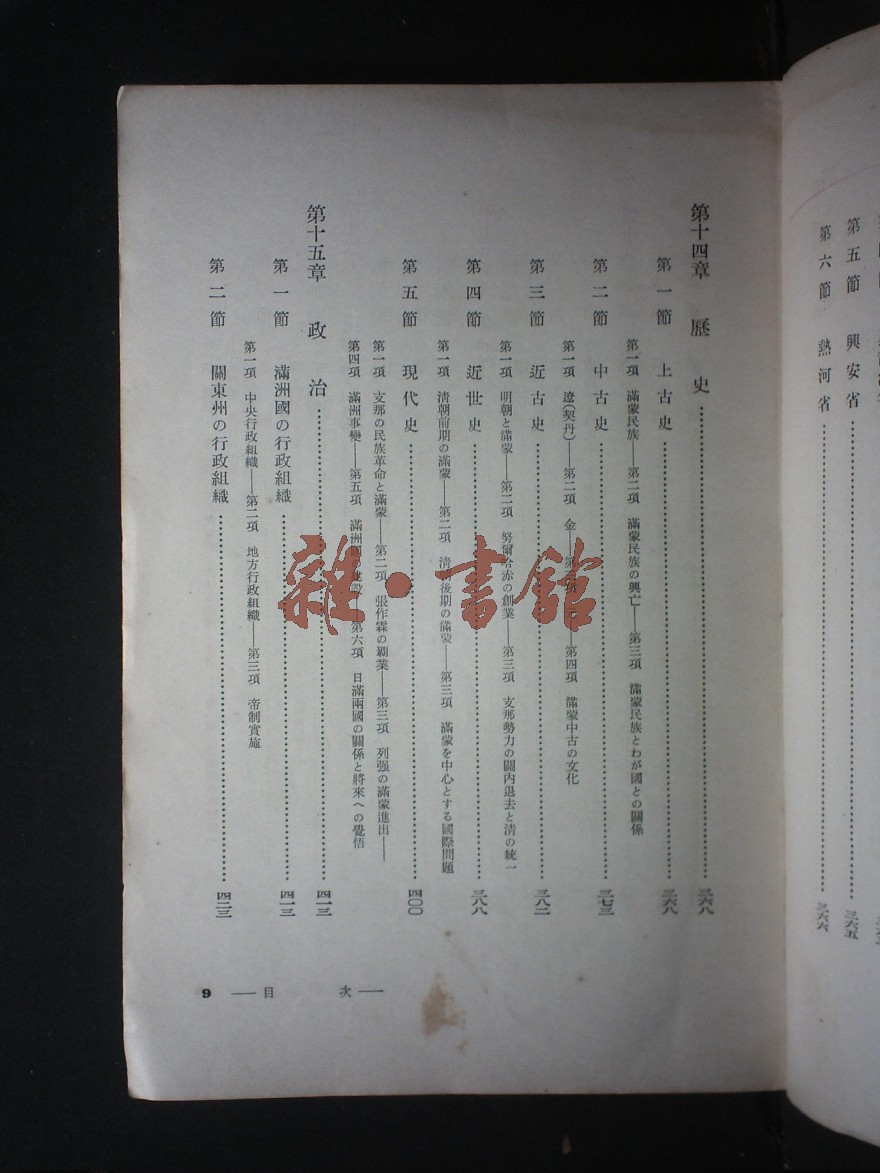 第五節 興安省
三六五
第六節 熱河省
三六六
第十四章 歷史
三六八
第一節 上古史
三六八
第一項 滿蒙民族——第二項 滿蒙民族の興亡——第三項 滿蒙民族とわが國との關係
第二節 中古史
三七三
第一項 遼(契丹)——第二項 金——第四項 滿蒙中古の文化
第三節 近古史
三八二
第一項 明朝と滿蒙——第二項 努爾哈赤の創業——第三項 支那勢力の關內退去と淸の統一
第四節 近世史
三八八
第一項 淸朝前期の滿蒙——第二項 淸朝後期の滿蒙——第三項 滿蒙を中心とする國際問題
第五節 現代史
四〇〇
第一項 支那の民族革命と滿蒙——第二項 張作霖の覇業——第三項 列强の滿蒙進出——
第四項 滿洲事變——第五項 滿洲國の建設——第六項 日滿兩國の關係と將來への覺悟
第十五章 政治
四一三
第一節 滿洲國の行政組織
四一三
第一項 中央行政組織——第二項 地方行政組織——第三項 帝制實施
第二節 關東州の行政組織
四二三
9 ——目次——
雜·書館